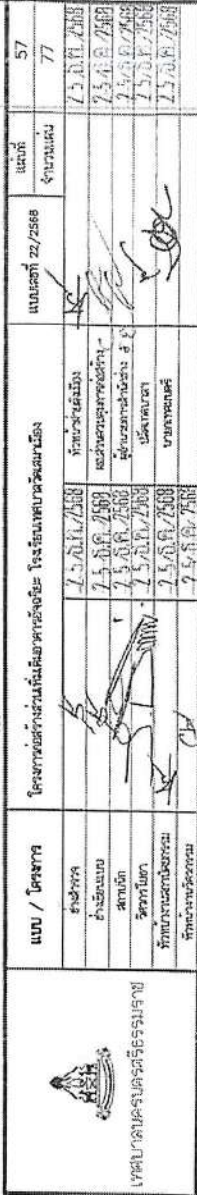 เทศบาลนครนครศรีธรรมราช
แบบ / โครงการ
โครงการก่อสร้างส่วนเพิ่มเติมอาคารอัจฉริยะ โรงเรียนเทศบาลวัดเสมาเมือง
แบบเลขที่ 22/2568
แผ่นที่
57
จำนวนแผ่น
77
ช่างสำรวจ
25 ธ.ค. 2568
หัวหน้าฝ่ายผังเมือง
25 ธ.ค. 2568
ช่างเขียนแบบ
25 ธ.ค. 2568
ผอ.ส่วนควบคุมการก่อสร้าง
25 ธ.ค. 2568
สถาปนิก
25 ธ.ค. 2568
ผู้อำนวยการสำนักช่าง
25 ธ.ค. 2568
วิศวกรโยธา
25 ธ.ค. 2568
ปลัดเทศบาล
25 ธ.ค. 2568
หัวหน้างานสถาปัตยกรรม
25 ธ.ค. 2568
นายกเทศมนตรี
25 ธ.ค. 2568
หัวหน้างานวิศวกรรม
25 ธ.ค. 2568